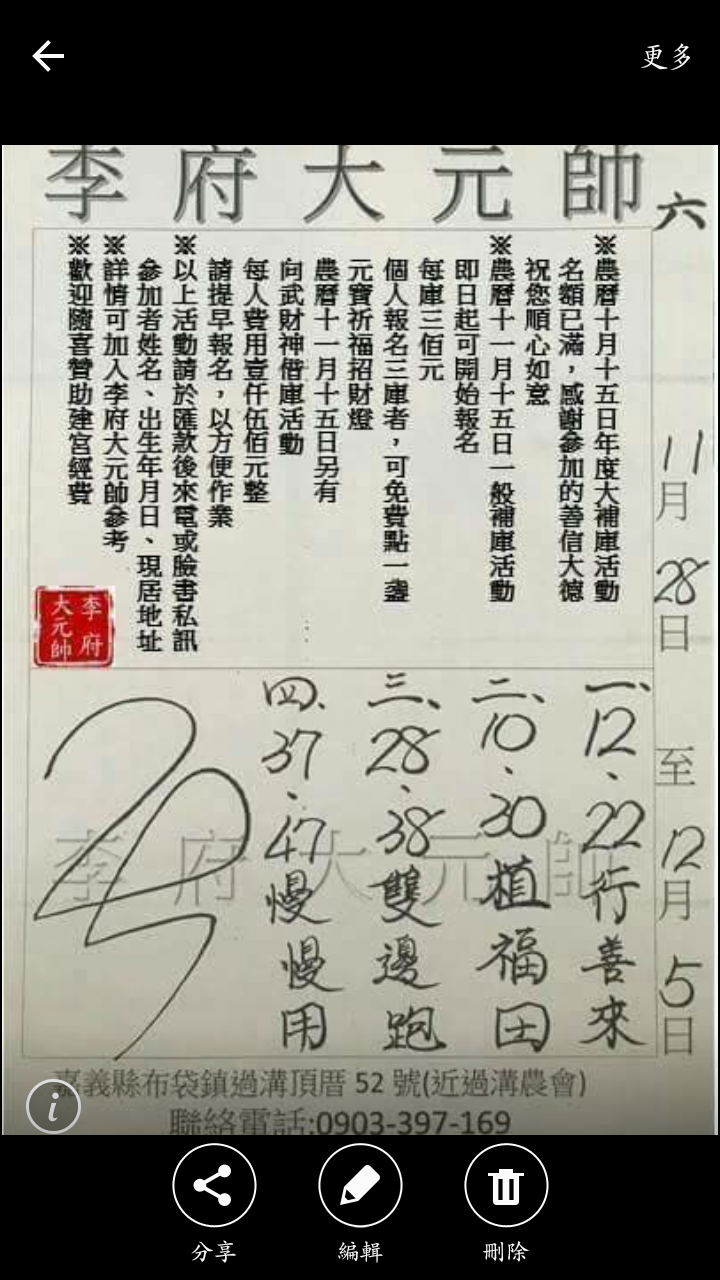 更多
李府大元帥
六
11月28日至12月5日
※農曆十月十五日年度大補庫活動
名額已滿，感謝參加的善信大德
祝您順心如意
※農曆十一月十五日一般補庫活動
即日起可開始報名
每庫三佰元
個人報名三庫者，可免費點一盞
元寶祈福招財燈
農曆十一月十五日另有
向武財神借庫活動
每人費用壹仟伍佰元整
請提早報名，以方便作業
※以上活動請於匯款後來電或臉書私訊
參加者姓名、出生年月日、現居地址
※詳情可加入李府大元帥參考
※歡迎隨喜贊助建宮經費
李府
大元帥
一、12、22行善來
二、10、30植福田
三、28、38雙邊跑
四、37、47慢慢用
李府大元帥
嘉義縣布袋鎮過溝頂厝 52 號(近過溝農會)
聯絡電話:0903-397-169
分享
編輯
刪除